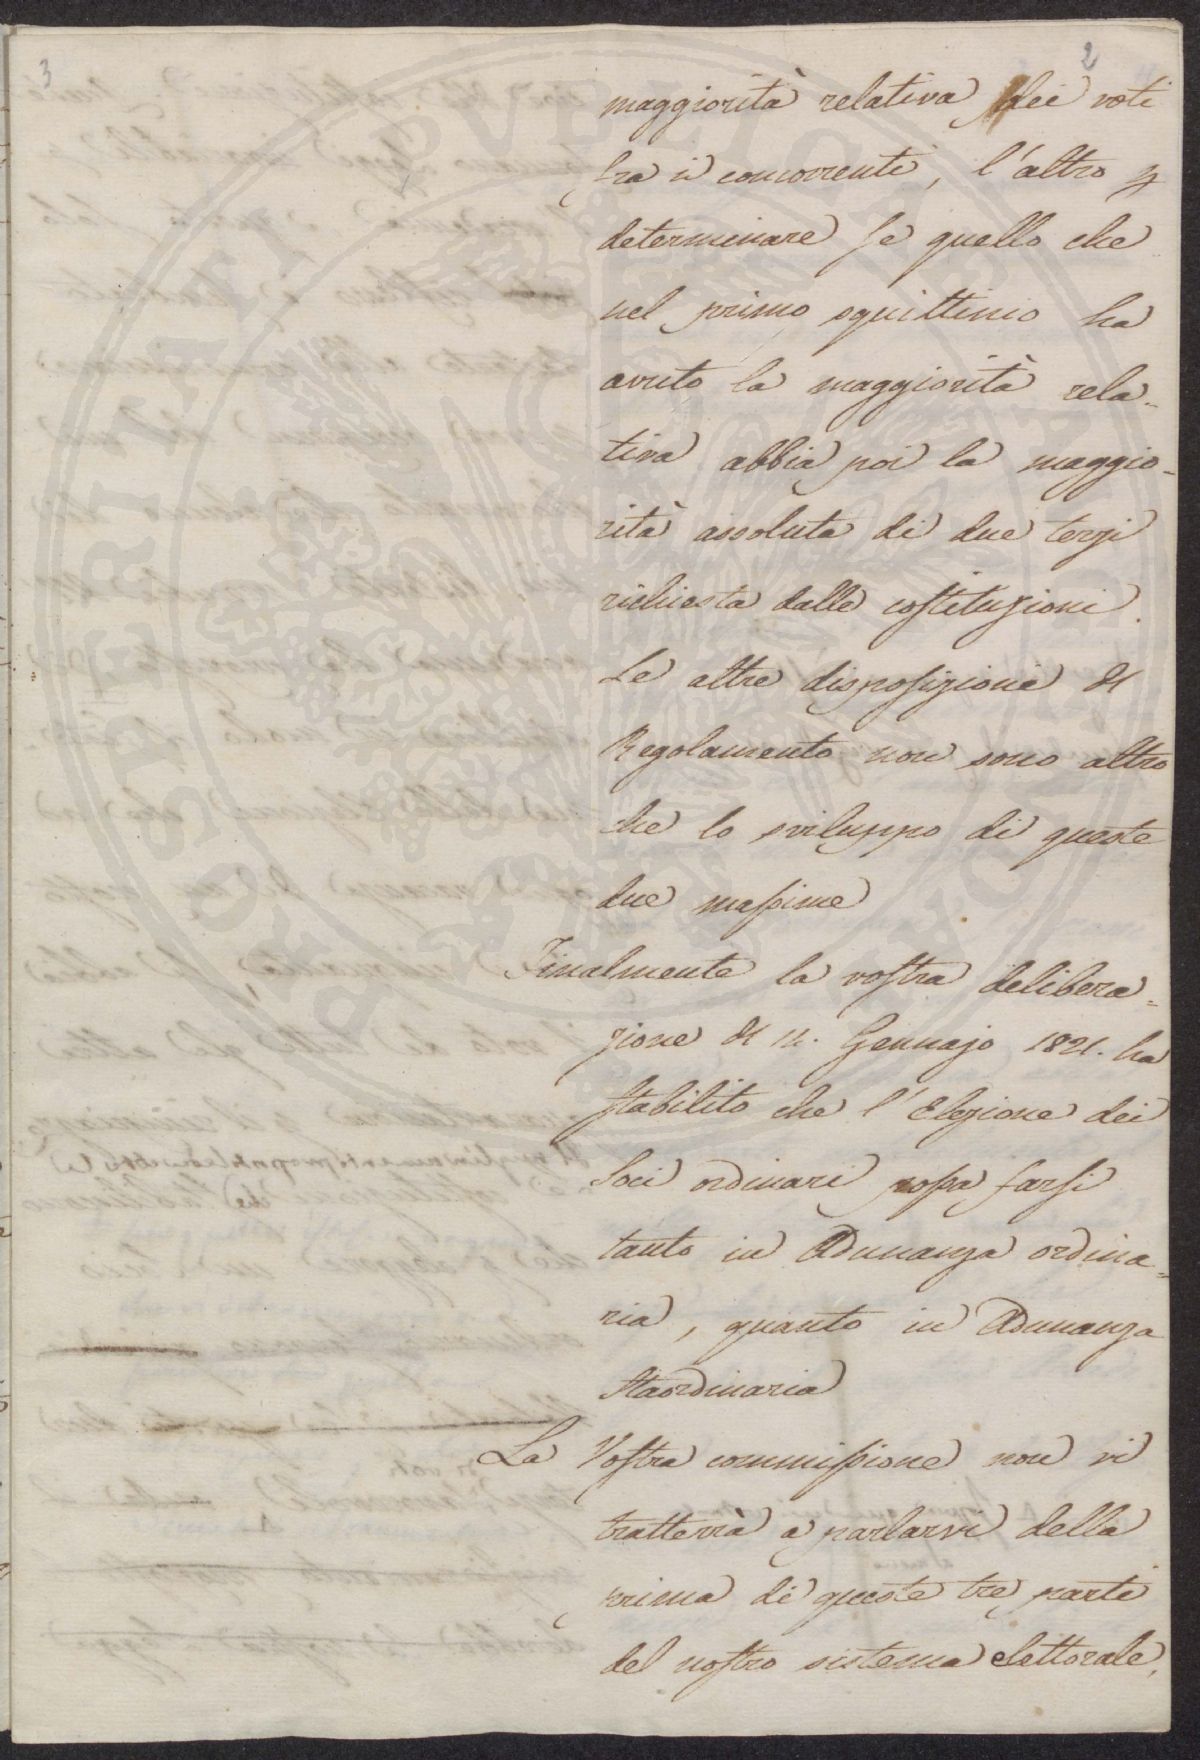 3
2
maggiorità relativa dei voti
fra i concorrenti, l'altro p
determinare se quello che
nel primo squittinio ha
avuto la maggiorità rela-
tiva abbia poi la maggio-
rità assoluta di due terzi
richiesta dalle costituzioni.
Le altre disposizioni del
Regolamento non sono altro
che lo sviluppo di queste
due massime
Finalmente la vostra delibera-
zione del 11. Gennajo 1821. ha
stabilito che l'Elezione dei
Soci ordinari possa farsi
tanto in Adunanza ordina-
ria, quanto in Adunanza
staordinaria
La Vostra commissione non vi
tratterrà a parlarvi della
prima di queste tre parti
del nostro sistema elettorale,